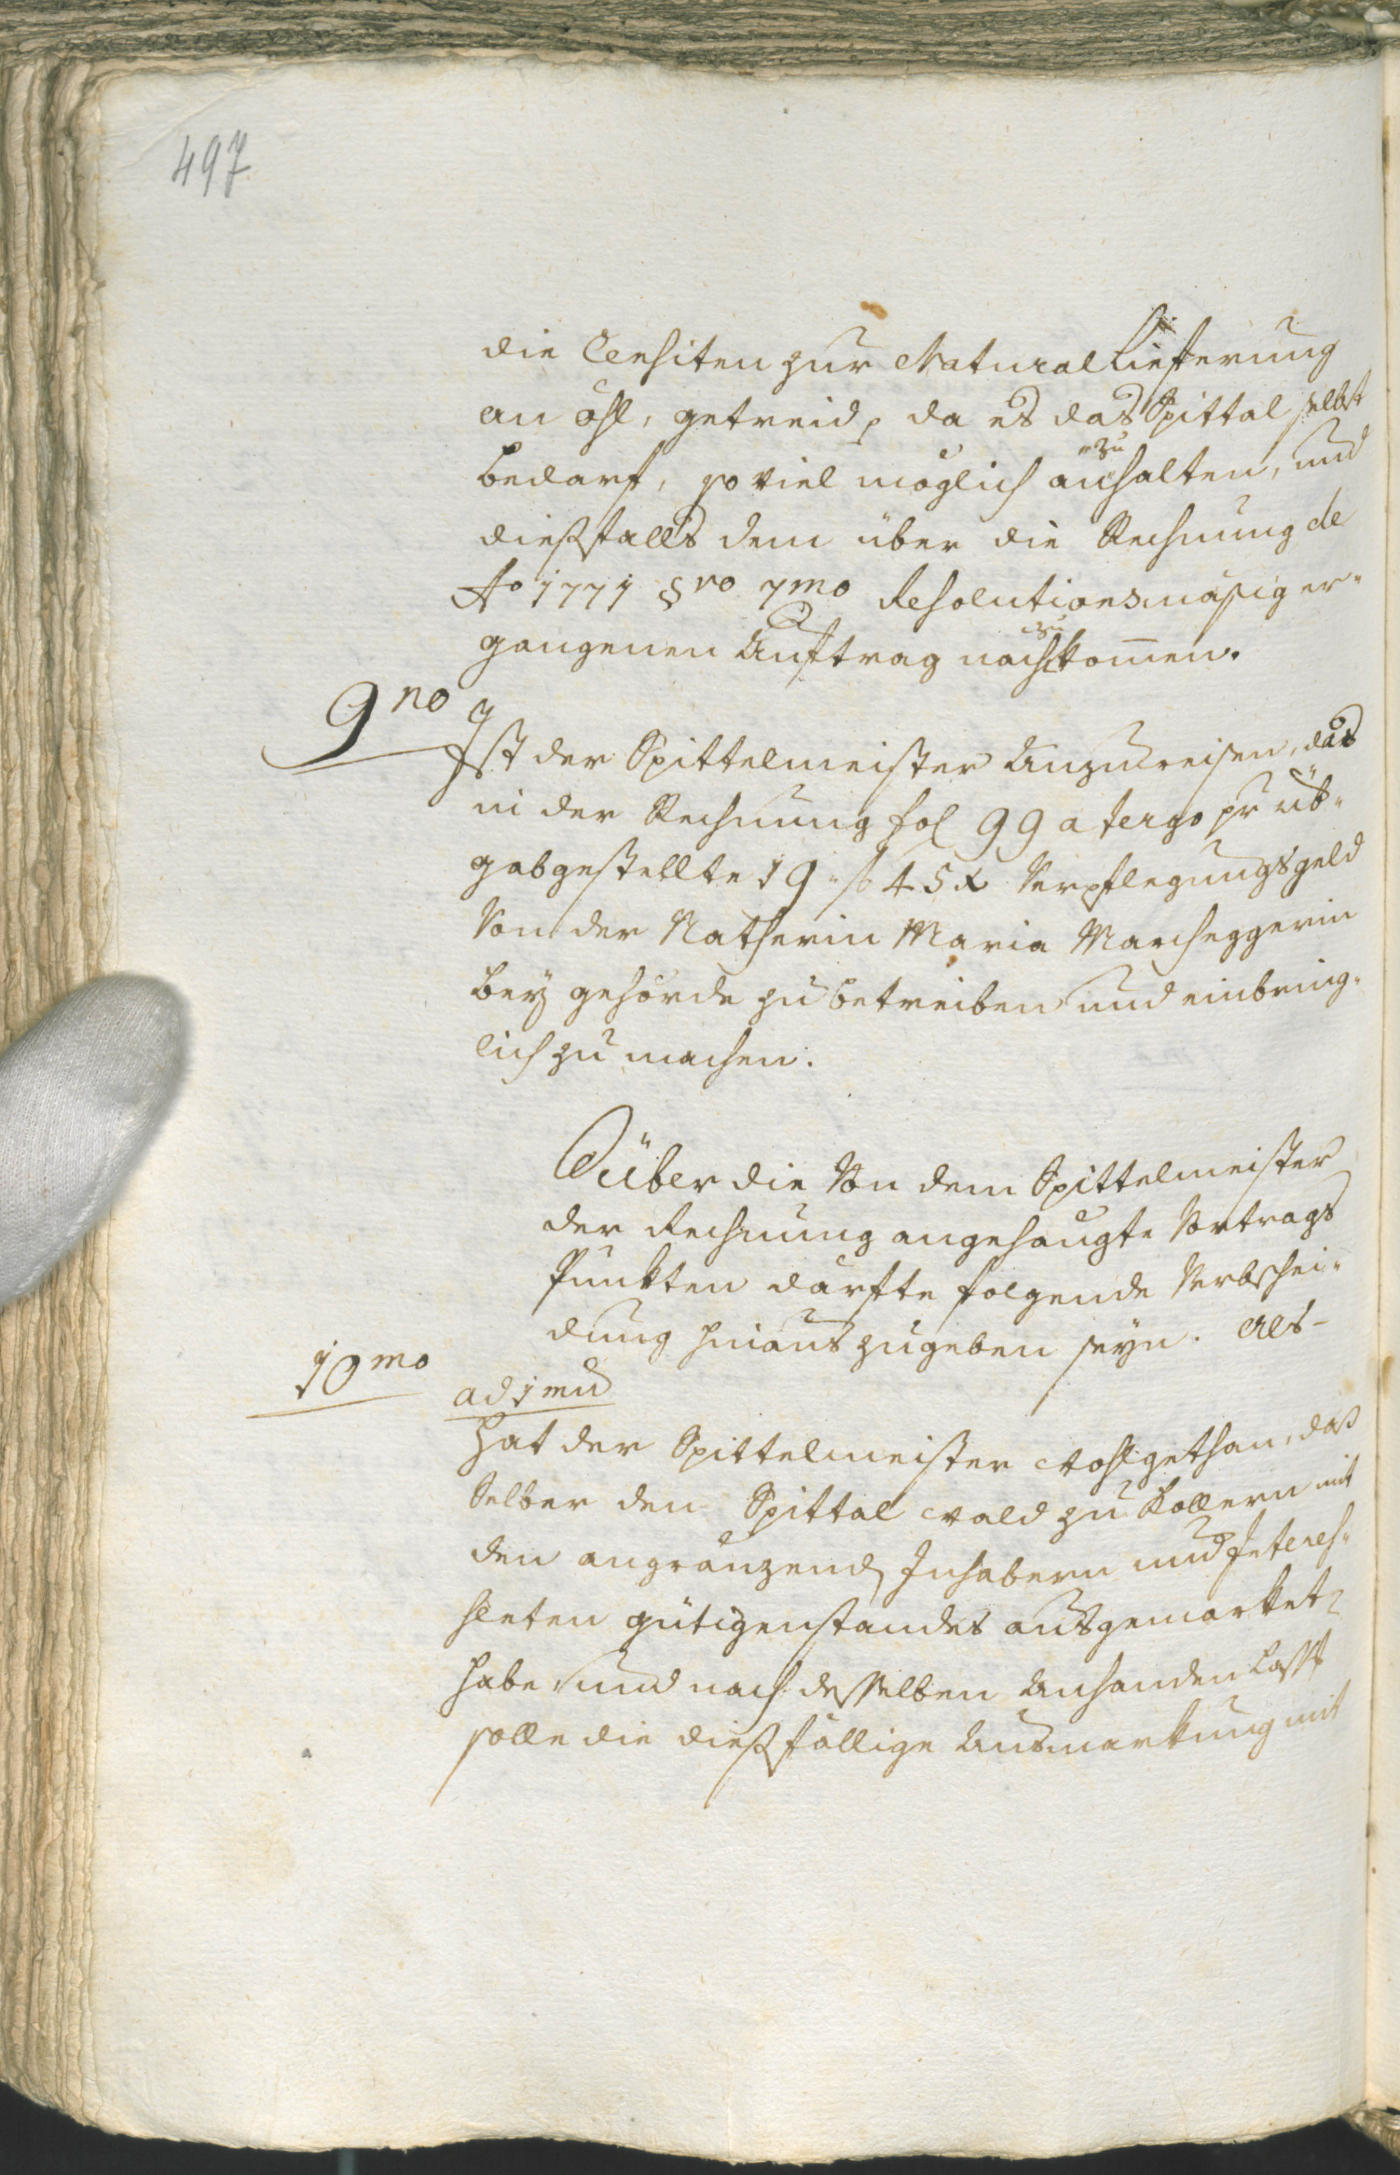 497
die Censiten zur Natural Lieferung
an öhl, getreid, da es das Spittal selbst
bedarf, so viel möglich anzuhalten, und
dießfalls dem über die Rechnung de
Ao 1771 §vo 7mo Resolutionsmäsig er-
gangenen Auftrag nachzukomen.
9no Ist der Spittelmeister Anzuweisen, das
in der Rechnung fol 99 a tergo pr
gabgestellte 19 f 45 x Verpflegungsgeld
Von der Natherin Maria Marcheggerin
bey gehörde zu betreiben und einbring-
lich zu machen.
Über die Von dem Spittelmeister
der Rechnung angehängte Vortrags
Punkten därfte folgende Verbschei-
dung hinaus zugeben seyn. Als-
10mo ad 1mu
Hat der Spittelmeister wohlgethan, daß
Selber den Spittal wald zu Kollern mit
den angränzend Inhabern und Interes-
senten gütigenstandes ausgemarket
habe, und nach desselben Anhanden
solle die dießfällige Ausmarkung mit